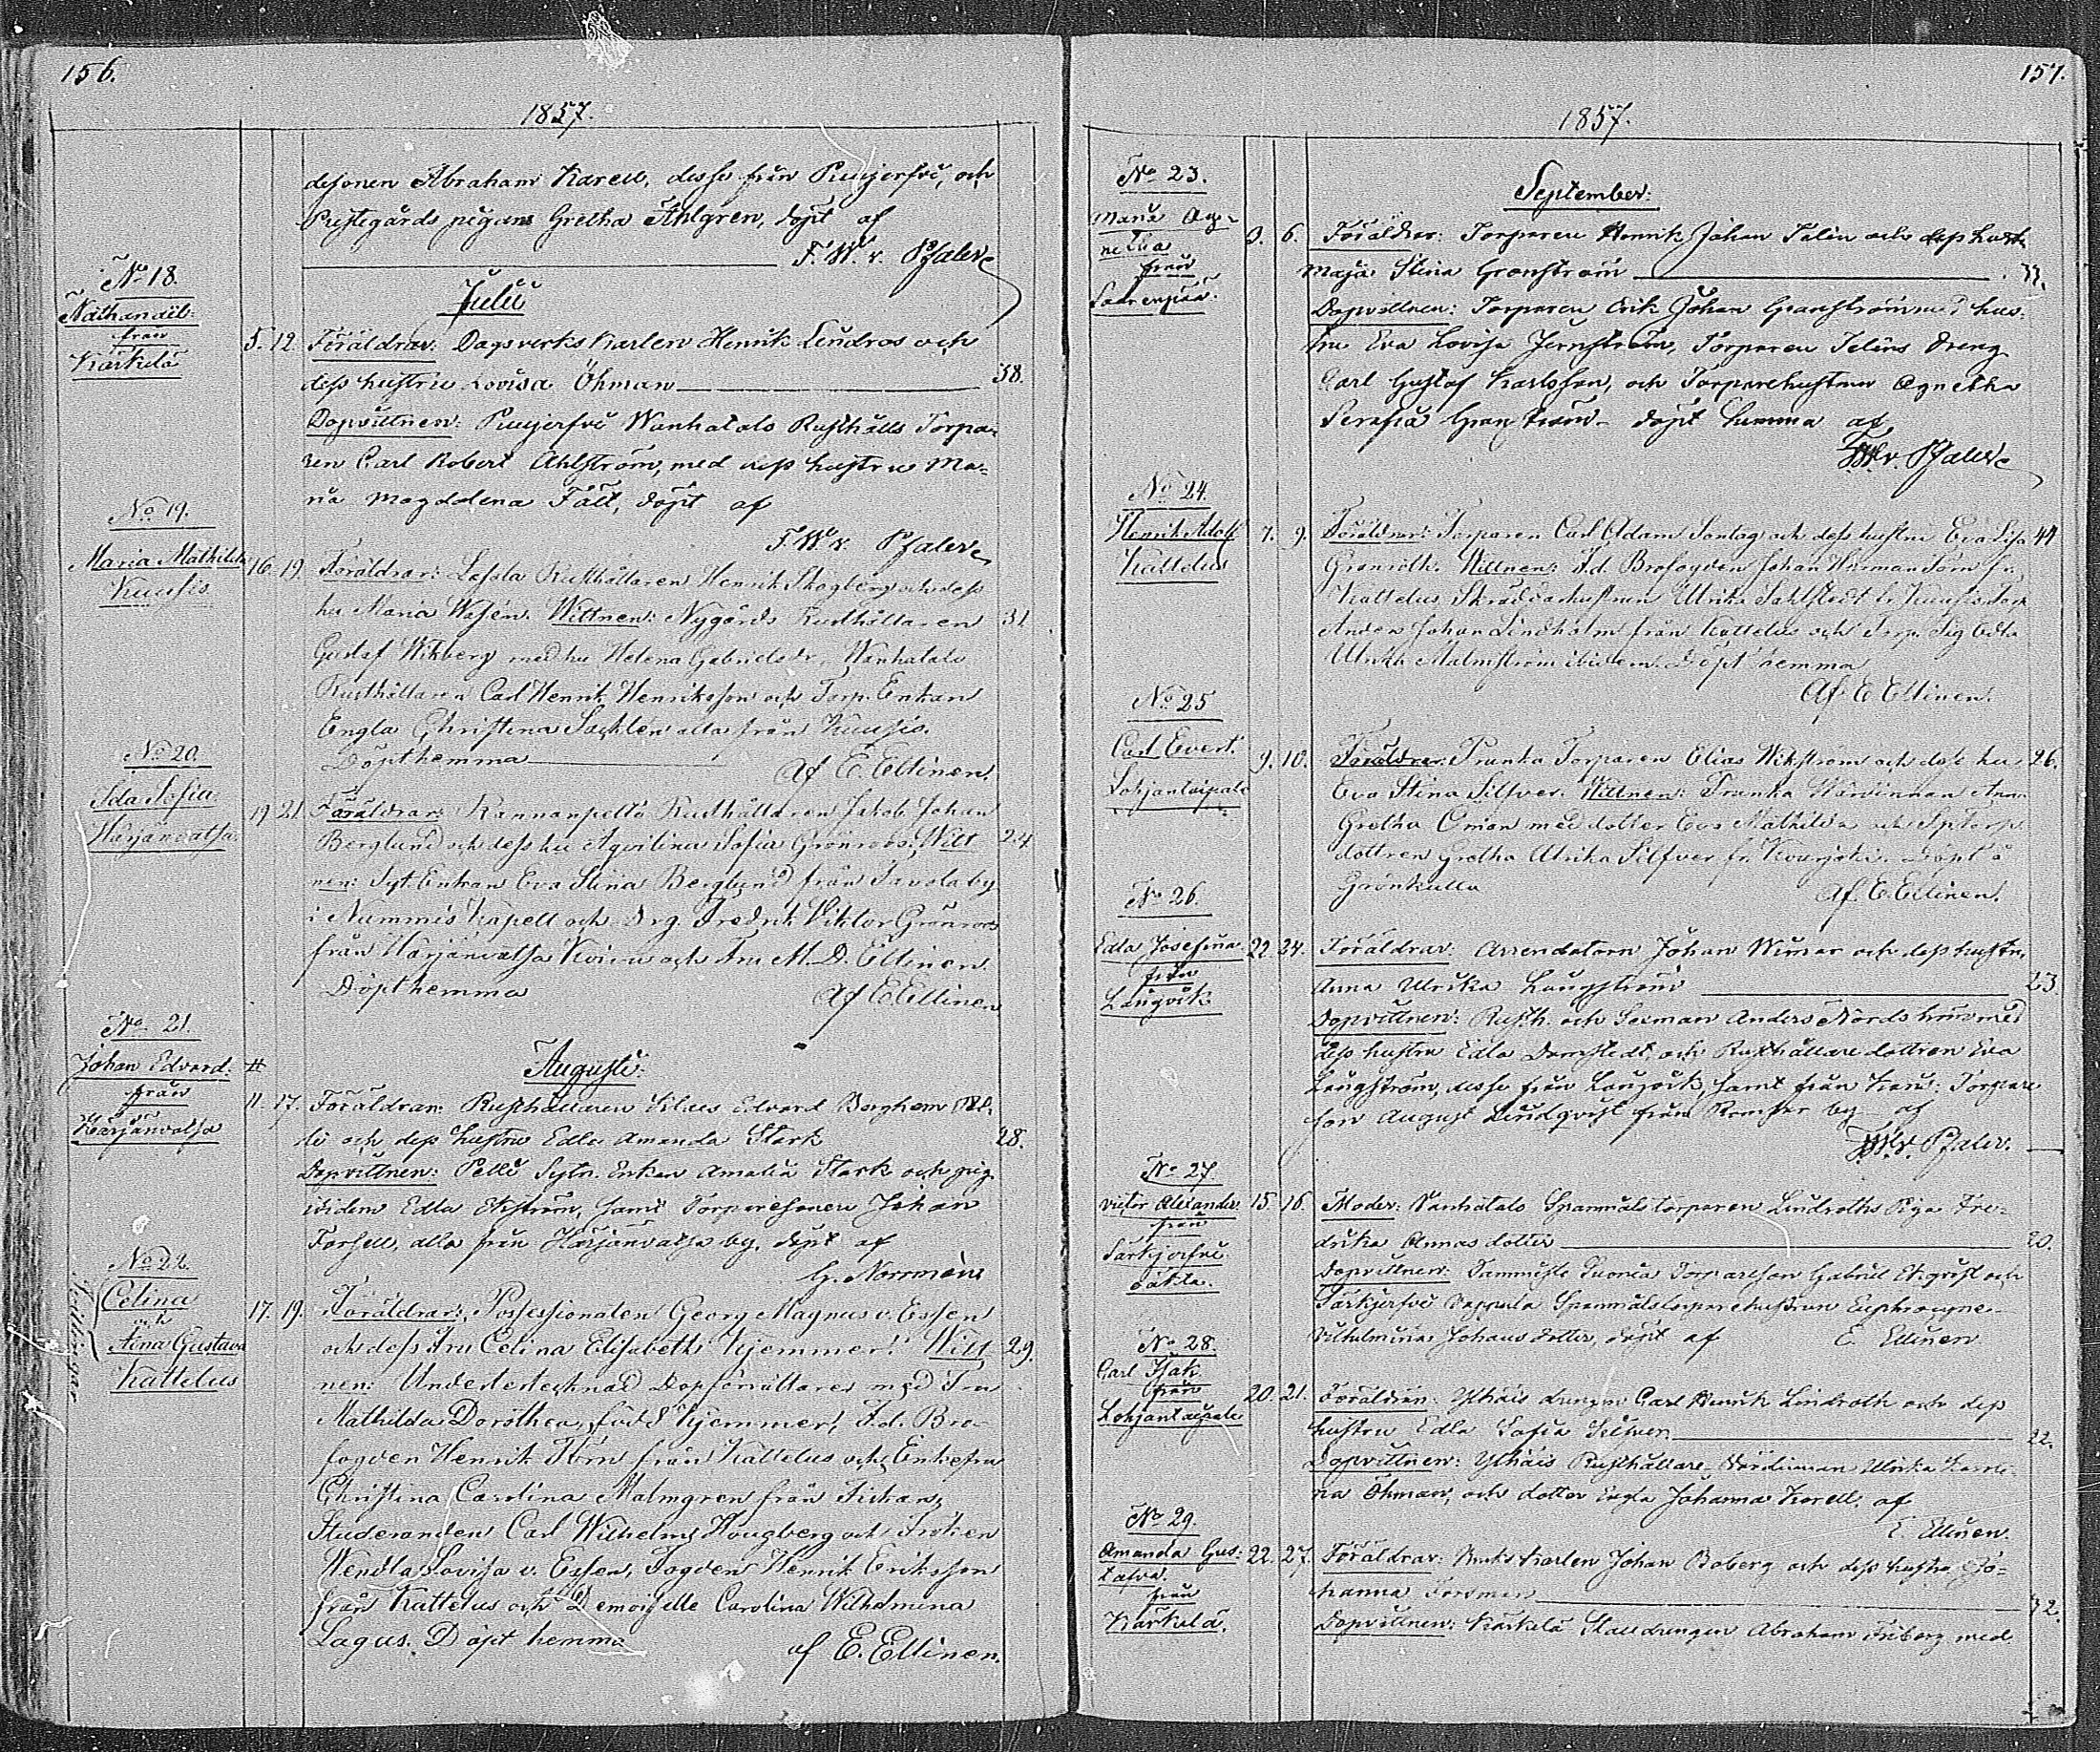 156.
1857.
desonen Abraham Karell, desse från Pusujerfvi, och
Prestegårds pigan Gretha Ahlgren, döpt af
F. W. v. Pfaler
Julii
No 18.
Nathanaël
från
Kärkelä
5. 12. Föräldrar: Dagsverks karlen Henrik Lindros och
dess hustru Lovisa Öhman 38.
Dopvittnen: Wanhatalo Rusthålls Torpa-
ren Carl Robert Ahlström, med dess hustru Ma-
ria Magdalena Fält, döpt af
F. W. v. Pfaler
No 19.
Maria Mathilda
Kuusis
16. 19. Föräldrar: Rusthållaren Henrik Skogberg och dess
hu Maria Wasén. Wittnen: Nygårds Rusthållaren 31.
Gustaf Wikberg med hu Helena Gabrielsdr, Wanhatalo
Rusthållaren Carl Henrik Henriksson och Torp. Enkan
Engla Christina Sacklén alla från Kuusis.
Döpt hemma
Af E. Ellinen.
No 20.
Ida Sofia
Harjanvatsa
19. 21. Föräldrar: Kannanpelto Rusthållaren Jakob Johan
Berglund och dess hu Aqvilina Sofia Grönroos. Witt 24.
nen: Syt. Enkan Eva Stina Berglund från Tavola by
i Nummis kapell och Drg. Fredrik Viktor Grönroos
från Harjanvatsa och Fru M. D. Ellinen.
Döpt hemma Af E Ellinen
No 21.
Johan Edvard.
från
Harjanvatsa
Augusti.
11. 17. Föräldrar: Rusthållaren Edvard Berghem
och dess hustru Edla Amanda Stark 28.
Dopvittnen: Pelle Sytn. Enkan Amalia Stark och pig.
ibidem Edla Ekström, samt Torparesonen Johan
Forsell, alla från Harjanvatsa by, döpt af
G. Norrmén
No 22.
Celina
och
Aina Gustava
Kattelus
Tvillingar
17. 19. Föräldrar: Possessionaten Georg Magnus v. Essen
och dess Fru Celina Elisabeth Kjemmer. Witt 29.
nen: Undertecknad Dopförrättare med Fru
Mathilda Dorothea, född Kjemmer, F.d. Bro-
fogden Henrik Törn från Kattelus och Enkefru
Christina Carolina Malmgren från Fiskars,
Studeranden Carl Wilhelm Hougberg och Fröken
Wendla Lovisa v. Essen, Fogden Henrik Eriksson
från Kattelus och Demoiselle Carolina Wilhelmina
Lagus. Döpt hemma af E. Ellinen.
157.
1857.
September.
No 23.
Maria Ag-
netha
från
Saarenpää.
3. 6. Föräldrar: Torparen Henrik Johan Telén och dess hustru
Maja Stina Granström 33.
Dopvittnen: Torparen Erik Johan Granström med hus-
tru Eva Lovisa Jernström, Torparen Teléns dreng
Carl Gustaf Karlsson, och Torparehustrun Agnetha
Serafia Granström. döpt hemma af
F.W.v. Pfaler
No 24.
Henrik Adolf
Kattelus
7. 9. Föräldrar: Torparen Carl Adam Sontag och dess hustru Eva Lisa 44
Grönroth. Wittnen: F.d. Brofogden Johan Herman Törn fr.
Kattelus Skräddarhustrun Ulrika Sahlstedt fr. Kuusis Torp
Anders Johan Lindholm från Kattelus och Torp. Pig Edla
Ulrika Malmström ibidem. Döpt hemma
Af E Ellinen.
No 25
Carl Evert.
Lohjantaipale
9. 10. Föräldrar: Torparen Elias Wikström och dess hu 26.
Eva Stina Silfver. Wittnen: Wärdinnan Anna
Gretha Oman med dotter Eva Mathilda och
dottren Gretha Ulrika Silfver fr. Kourjoki. Döpt å
Grönkulla Af E. Ellinen.
No 26.
Edla Josefina
från
Långvik.
22. 24. Föräldrar: Arrendatorn Johan Wimer och dess hustru
Anna Ulrika Långström 23.
Dopvittnen: Rusth. och Sexman Anders Nordström med
dess hustru Edla Damstedt, och Rusthållare dottren Eva
Långström, desse från Långvik, samt från Karis: Torpare
son August Lindqvist från Romsar by af
F.W.v. Pfaler.
No 27.
Victor Alexander
från
Särkjerfvi
15. 16. Moder: Vanhatalo Spanmåls torparen Lindroths Piga Fre-
drika Annas dotter 20.
Dopvittnen: Tammisto Torpareson Gabriel Ekqvist och
Särkjerfvi Spanmålstorparehustrun Euphrosyne
Vilhelmina Johans dotter, döpt af E. Ellinen
No 28.
Carl Isak
från
Lohjantaipale
20. 21. Föräldrar: Ylhäis drengen Carl Henrik Lindroth och dess
hustru Edla Sofia Silfver. 22.
Dopvittnen: Ylhäis Rusthållare Värdinnan Ulrika Karoli-
na Öhman, och dotter Engla Johanna Korell. af
E. Ellinen.
No 29.
Amanda Gus-
tafva
från
Kärkelä.
22. 27. Föräldrar: Bruks karlen Johan Boberg och dess hustru Jo-
hanna Forsman 32.
Dopvittnen: Kärkelä Stalldrengen Abraham Friberg med